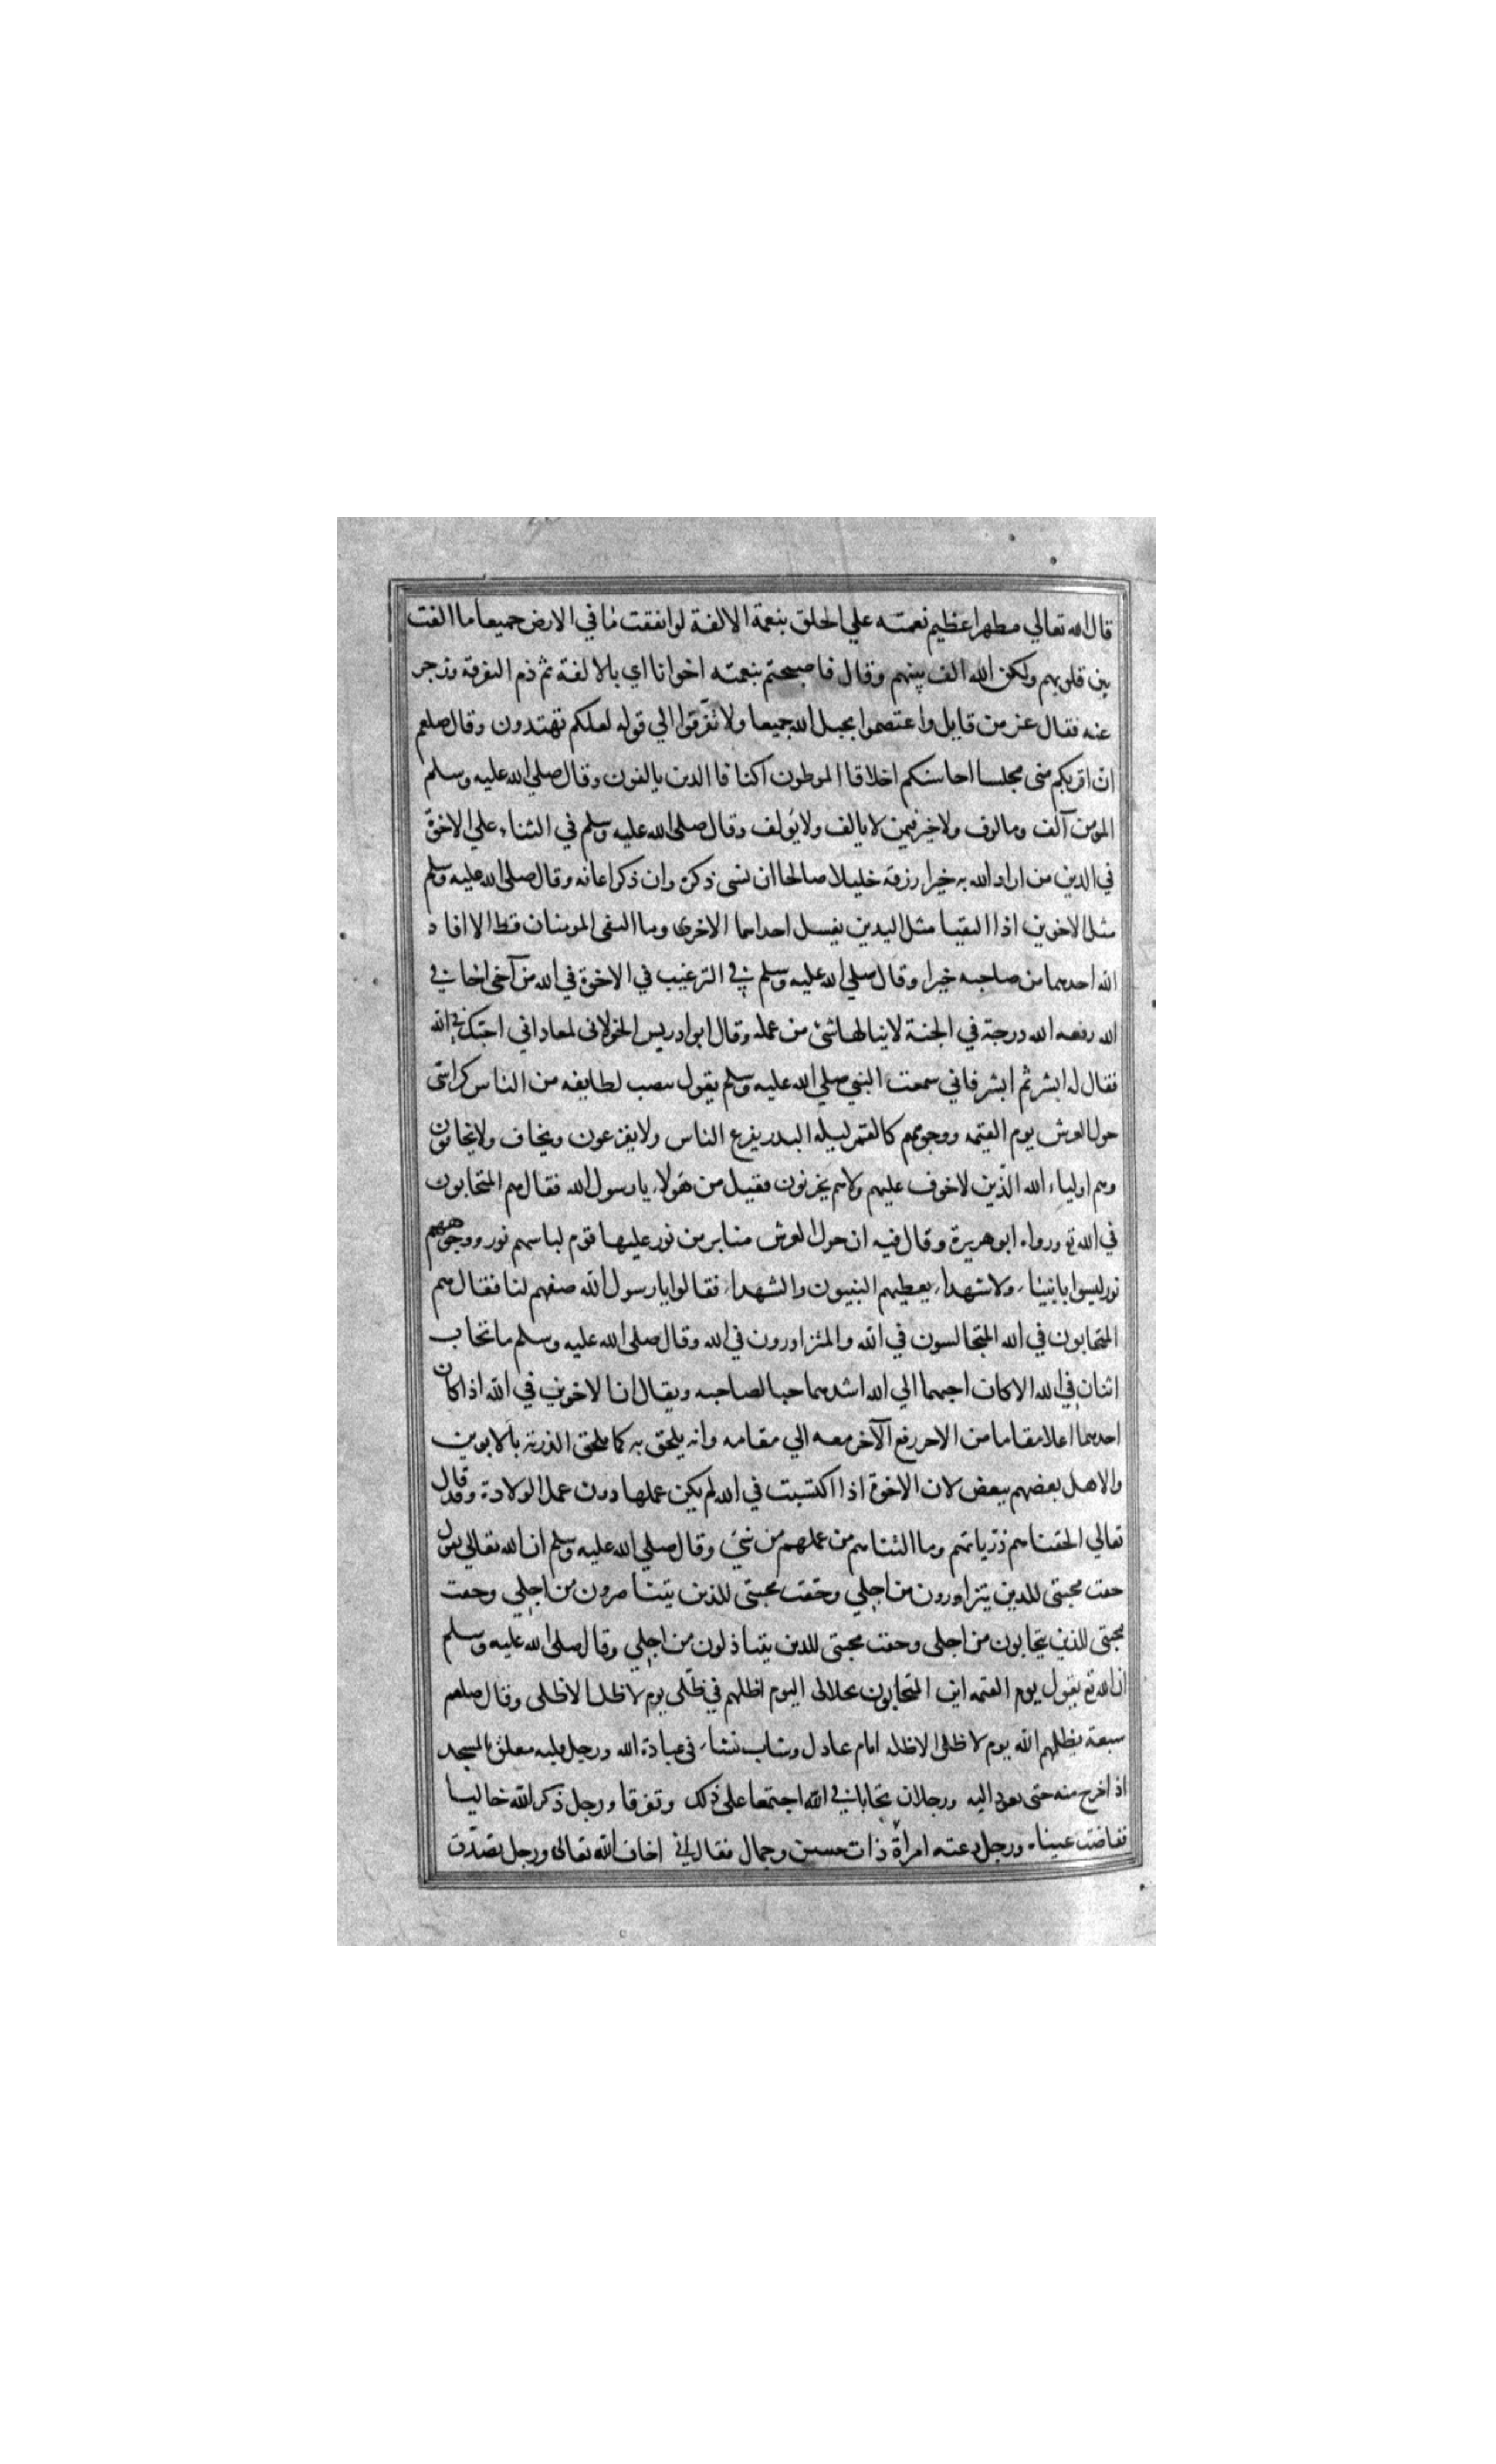 قال الله تعالي مظهرا عظيم نعمته علي الخلق بنعمة الالفة لو انفقت ما في الارض جميعا ما الفت
بين قلوبهم ولكن الله الف بينهم وقال فاصبحتم بنعمته اخوانا اي بالالفة ثم ذم التفرقة وزجر
عنه فقال عز من قايل واعتصموا بحبل الله جميعا ولا تفرقوا الي قوله لعلكم تهتدون وقال صلعم
ان اقربكم مني مجلسا احاسنكم اخلاقا الموطون اكنافا الذين يالفون وقال صلي الله عليه وسلم
المومن آلف ومالوف ولا خير فيمن لا يالف ولا يولف وقال صلي الله عليه وسلم في الثناء علي الاخوة
في الدين من اراد الله به خيرا رزقه خليلا صالحا ان نسي ذكره وان ذكر اعانه وقال صلي الله عليه وسلم
مثل الاخوين اذا التقيا مثل اليدين يغسل احداهما الاخري وما التقي المومنان قط الا افاد
الله احدهما من صاحبه خيرا وقال صلي الله عليه وسلم في الترغيب في الاخوة في الله من آخي اخا في
الله رفعه الله درجة في الجنة لا ينالها شئ من عمله وقال ابو ادريس الخولاني لمعاد اني احبك في الله
فقال له ابشر ثم ابشر فاني سمعت النبي صلي الله عليه وسلم يقول ينصب لطايفه من الناس كراسي
حول العرش يوم القيمه ووجوههم كالقمر ليله البدر يفزع الناس ولا يفزعون ويخاف ولا يخافون
وهم اولياء الله الذين لا خوف عليهم ولا هم يحزنون فقيل من هولاء يا رسول الله فقال هم المتحابون
في الله تع ورواه ابو هريرة وقال فيه ان حول العرش منابر من نور عليها قوم لباسهم نور ووجوههم
نور ليسوا بانبياء ولا شهداء يغبطهم النبيون والشهداء فقالوا يا رسول الله صفهم لنا فقال هم
المتحابون في الله المتجالسون في الله والمتزاورون في الله وقال صلي الله عليه وسلم ما تحاب
اثنان في الله الا كان احبهما الي الله اشدهما حبا لصاحبه ويقال ان الاخوين في الله اذا كان
احدهما اعلا مقاما من الاخر رفع الآخر معه الي مقامه وانه يلحق به كما يلحق الذرية بالابوين
والاهل بعضهم ببعض لان الاخوة اذا اكتسبت في الله لم يكن عملها دون عمل الولادة وقد قال
تعالي الحقنا بهم ذرياتهم وما التناهم من عملهم من شئ وقال صلي الله عليه وسلم ان الله تعالي يقول
حقت محبتي للذين يتزاورون من اجلي وحقت محبتي للذين يتناصرون من اجلي وحقت
محبتي للذين يتحابون من اجلي وحقت محبتي للذين يتباذلون من اجلي وقال صلي الله عليه وسلم
ان الله تع يقول يوم القيمه اين المتحابون بجلالي اليوم اظلهم في ظلي يوم لا ظل الا ظلي وقال صلعم
سبعة يظلهم الله يوم لا ظل الا ظله امام عادل وشاب نشاء في عبادة الله ورجل قلبه معلق بالمسجد
اذا خرج منه حتي يعود اليه ورجلان تحابا في الله اجتمعا علي ذلك وتفرقا ورجل ذكر الله خاليا
ففاضت عيناه ورجل دعته امراة ذات حسن وجمال فقال اني اخاف الله تعالي ورجل تصدق